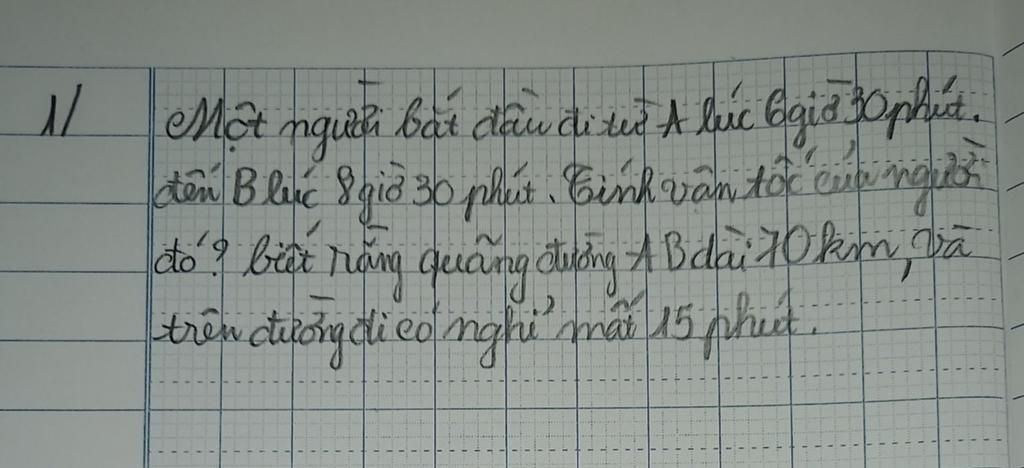 1/ Một người bắt đầu đi từ A lúc 6 giờ 30 phút.
đến B lúc 8 giờ 30 phút. Tính vận tốc của người
đó? Biết rằng quãng đường AB dài 70 km, và
trên đường đi có nghỉ mất 15 phút.